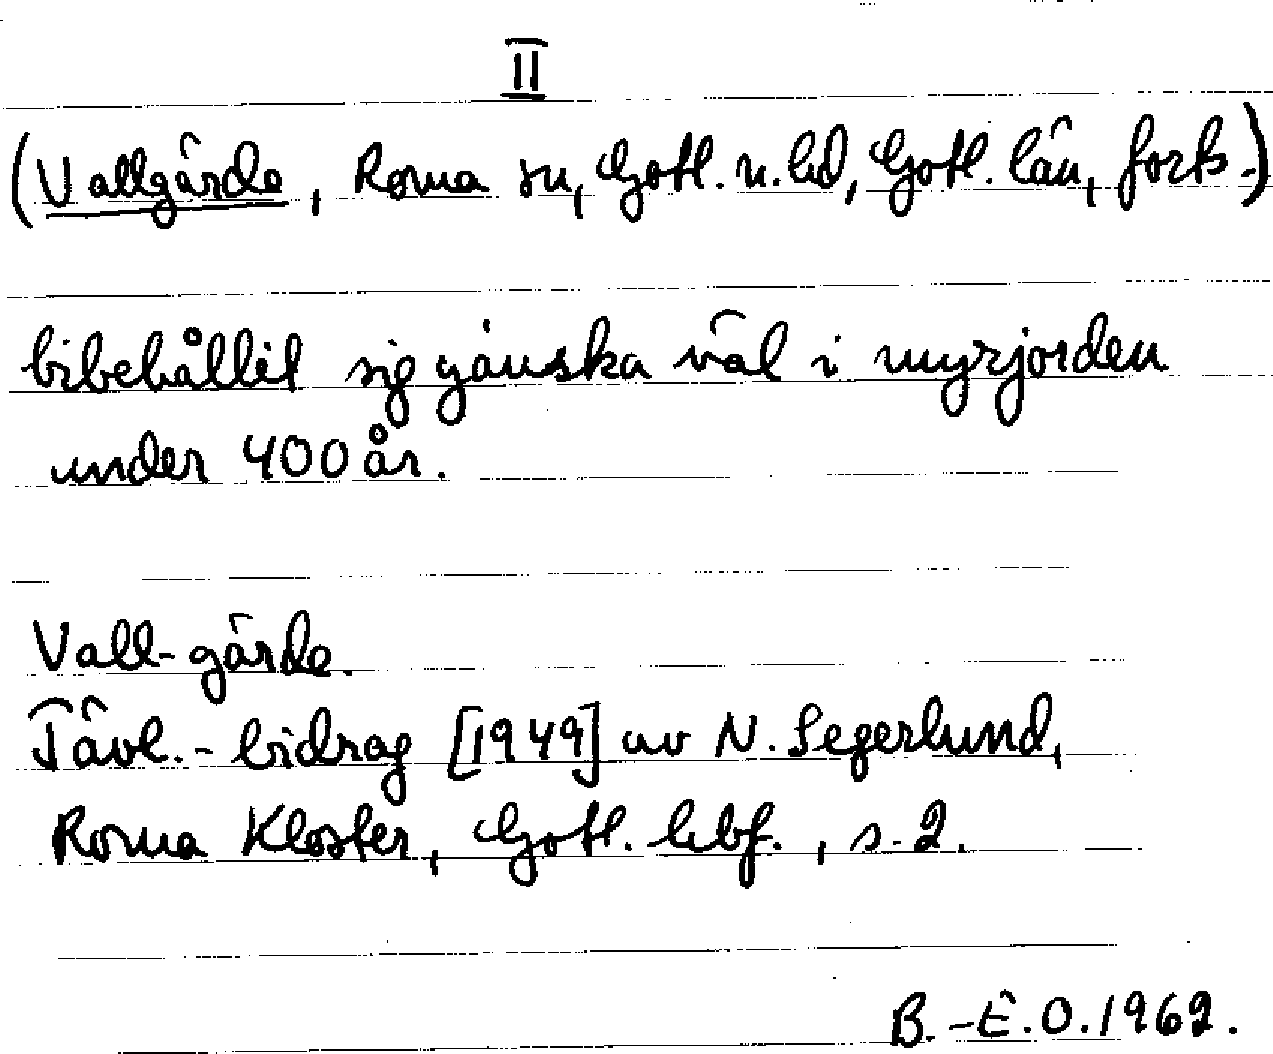 II
(Vallgärde, Roma sn, Gotl. n. hd, Gotl. län, forts.)
bibehållit sig gänska väl i myrjorden
under 400 år.
Vall-gärde.
Tävl.-bidrag [1949] av N. Segerlund,
Roma Kloster, Gotl. hbf., s. 2.
B.-E.O. 1962.